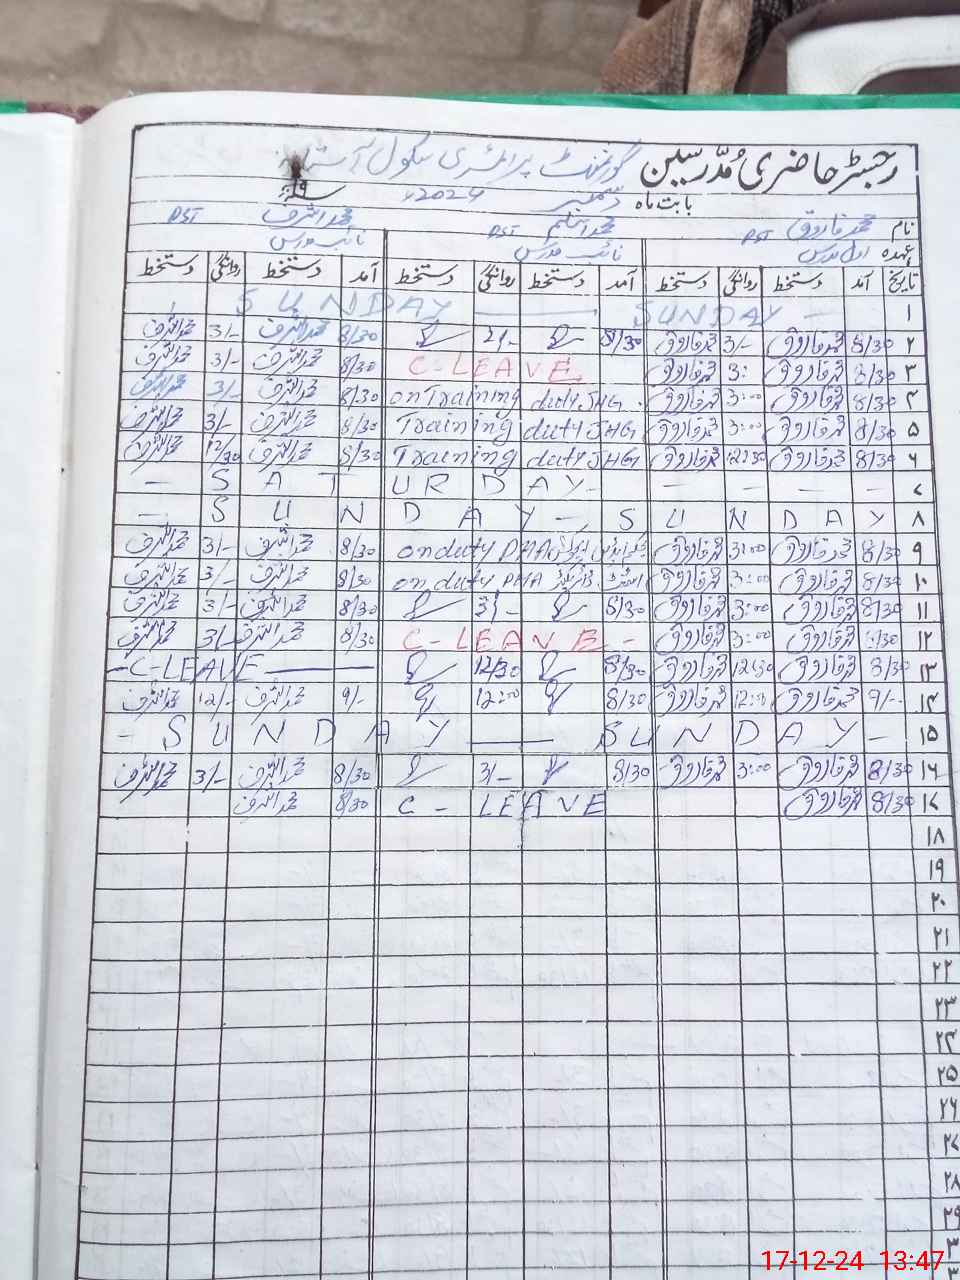 رجسٹر حاضری مُدرّسین گورنمنٹ پرائمری سکول آستانہ
بابت ماہ دسمبر 2024ء
نام محمد فاروق PST محمد اسلم PST محمد اشرف PST
عہدہ اول مدرس نائب مدرس نائب مدرس
تاریخ آمد دستخط روانگی دستخط آمد دستخط روانگی دستخط آمد دستخط روانگی دستخط
۱ SUNDAY SUNDAY
۲ 8/30 محمد فاروق 3/- محمد فاروق 8/30 2/- 8/30 محمد اشرف 3/- محمد اشرف
۳ 8/30 محمد فاروق 3: محمد فاروق C-LEAVE 8/30 محمد اشرف 3/- محمد اشرف
۴ 8/30 محمد فاروق 3:00 محمد فاروق on Training duty JHG. 8/30 محمد اشرف 3/- محمد اشرف
۵ 8/30 محمد فاروق 3:00 محمد فاروق Training duty JHG 8/30 محمد اشرف 3/- محمد اشرف
۶ 8/30 محمد فاروق 12:30 محمد فاروق Training duty JHG 8/30 محمد اشرف 12/30 محمد اشرف
۷ - SATURDAY - - - - -
۸ - SUNDAY - SUNDAY
۹ 8/30 محمد فاروق 3:00 محمد فاروق on duty DMA 8/30 محمد اشرف 3/- محمد اشرف
۱۰ 8/30 محمد فاروق 3:00 محمد فاروق on duty DMA 8/30 محمد اشرف 3/- محمد اشرف
۱۱ 8/30 محمد فاروق 3:00 محمد فاروق 8/30 3/- 8/30 محمد اشرف 3/- محمد اشرف
۱۲ 8/30 محمد فاروق 3:00 محمد فاروق C-LEAVE - 8/30 محمد اشرف 3/- محمد اشرف
۱۳ 8/30 محمد فاروق 12:30 محمد فاروق 8/30 12/30 -C-LEAVE
۱۴ 9/- محمد فاروق 12:00 محمد فاروق 8/30 12:00 9/- محمد اشرف 12/- محمد اشرف
۱۵ - SUNDAY SUNDAY -
۱۶ 8/30 محمد فاروق 3:00 محمد فاروق 8/30 3/- 8/30 محمد اشرف 3/- محمد اشرف
۱۷ 8/30 محمد فاروق C-LEAVE 8/30 محمد اشرف
۱۸
۱۹
۲۰
۲۱
۲۲
۲۳
۲۴
۲۵
۲۶
۲۷
۲۸
۲۹
17-12-24 13:47